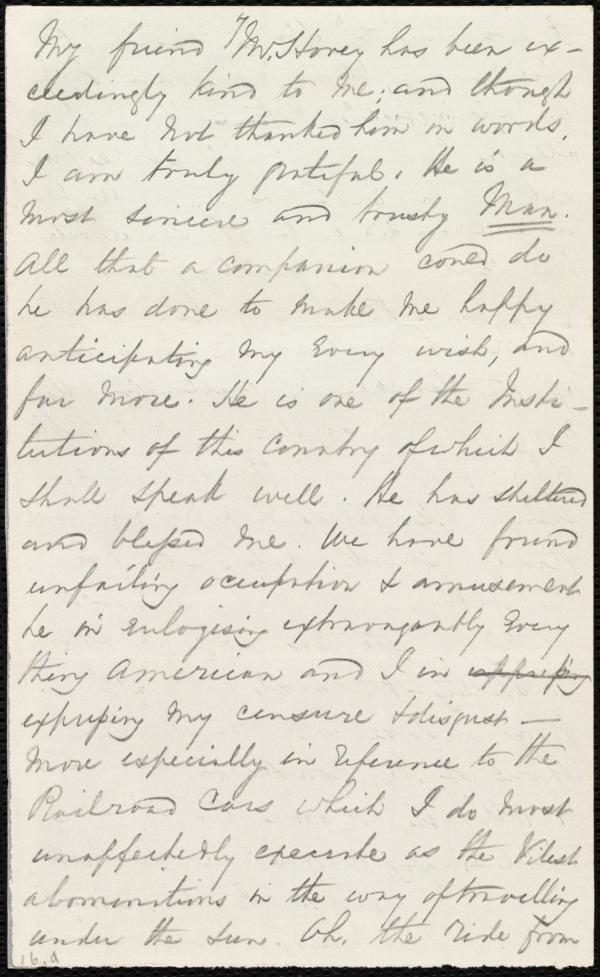 My friend Mr. Hovey has been ex-
ceedingly kind to me; and though
I have not thanked him in words,
I am truly grateful. He is a
most sincere and trusty Man.
All that a companion could do
he has done to make me happy
anticipating my every wish, and
far more. He is one of the Insti-
tutions of this Country of which I
shall speak well. He has sheltered
and blessed me. We have found
unfailing occupation & amusement
he in eulogising extravagantly every
thing American and I in
expressing my censure & disgust —
more especially in reference to the
Railroad Cars which I do most
unaffectedly execrate as the vilest
abominations in the way of travelling
under the sun. Oh, the ride from